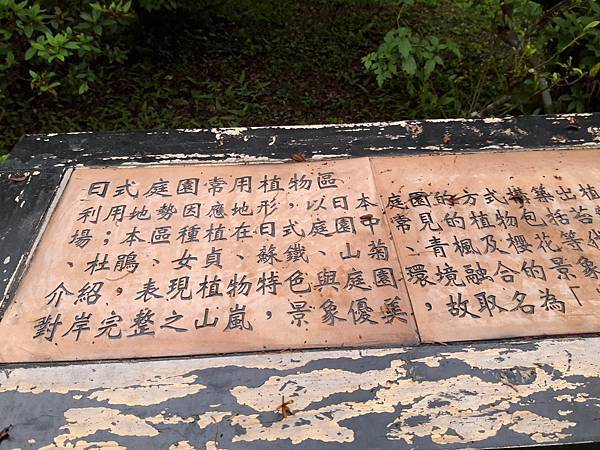 日式庭園常用植物區
利用地勢因應地形，以日本庭園的方式構築出植
場；本區種植在日式庭園中常見的植物包括
、杜鵑、女貞、蘇鐵、山菊、青楓及櫻花等代
介紹，表現植物特色與庭園環境融合的景象
對岸完整之山嵐，景象優美，故取名為「